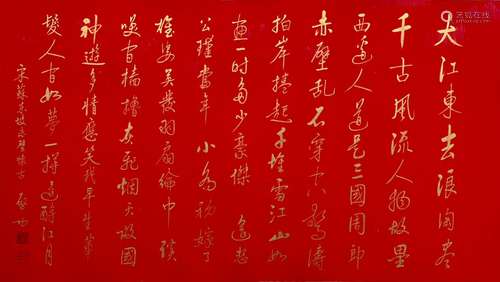 大江東去浪淘尽
千古風流人物故壘
西邊人道是三國周郎
赤壁乱石穿空驚濤
拍岸捲起千堆雪江山如
画一时多少豪傑 遥想
公瑾當年 小喬初嫁了
雄姿英發羽扇綸巾 談
笑间檣櫓灰飛烟灭故國
神遊多情應笑我早生華
髮人间如夢一樽還酹江月
宋蘇东坡赤壁懷古